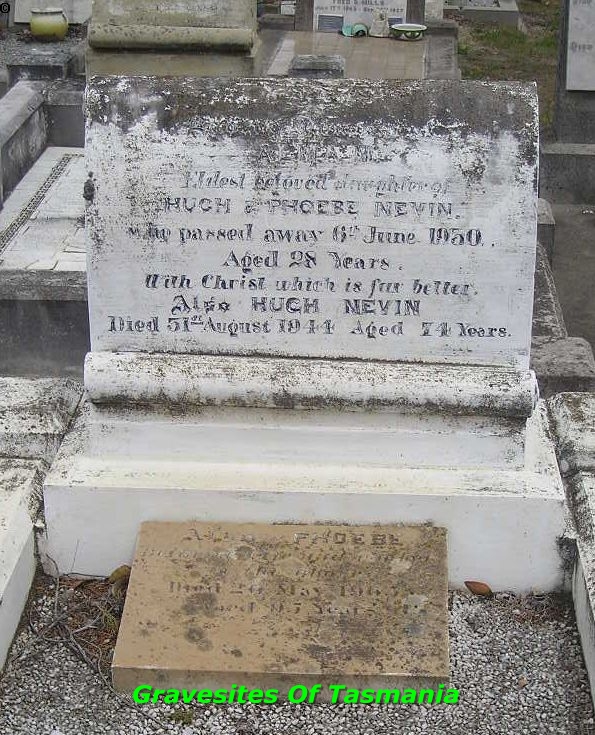 Eldest beloved daughter of
HUGH & PHOEBE NEVIN.
who passed away 6th June 1930.
Aged 28 Years.
With Christ which is far better.
Also HUGH NEVIN
Died 31st August 1944 Aged 74 Years.
ALSO PHOEBE
Died 26 May 196
Aged 97 Years
Gravesites Of Tasmania